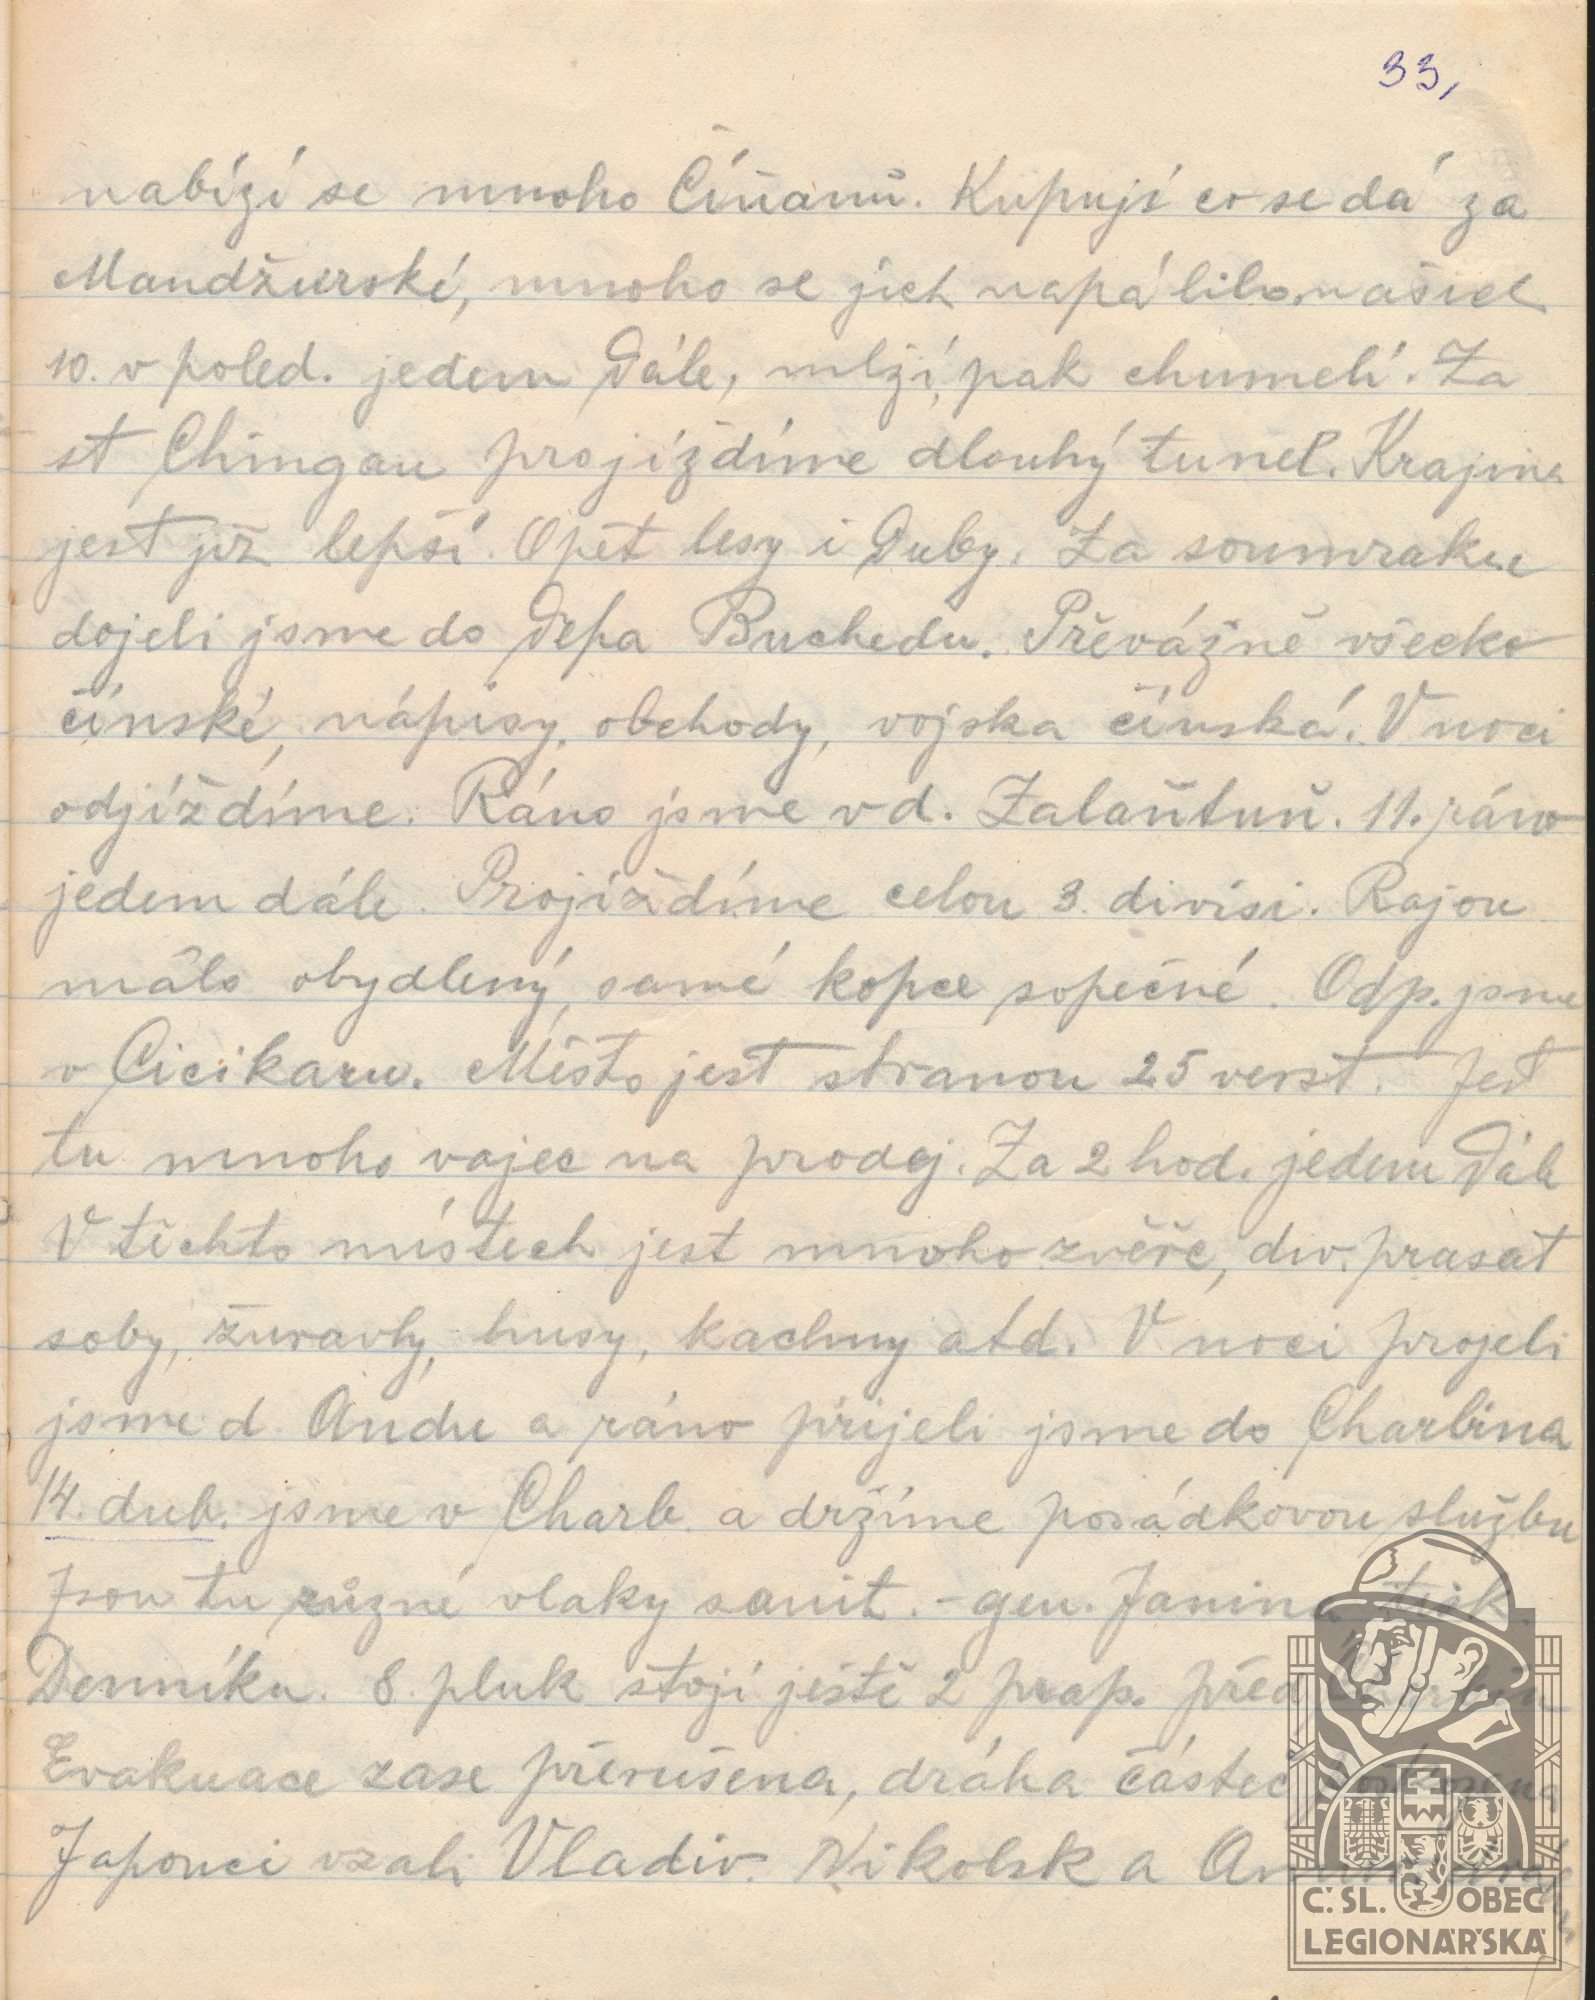 33,
nabízí se mnoho Číňanů. Kupují co se dá za
Mandžurské, mnoho se jich napálilo našich
10. v poled. jedem dále, mlží, pak chumelí. Za
st Chingan projíždíme dlouhý tunel. Krajina
jest již lepší. Opět lesy i duby. Za soumraku
dojeli jsme do depa Buchedu. Převážně všecko
čínské, nápisy, obchody, vojska čínská. V noci
odjíždíme. Ráno jsme v d. Zalaňtuň. 11. ráno
jedem dále. Projíždíme celou 3. divisi. Rajon
málo obydlený, samé kopce sopečné. Odp. jsme
v Cicikaru. Město jest stranou 25 verst. Jest
tu mnoho vajec na prodej. Za 2 hod. jedem dále
V těchto místech jest mnoho zvěře, div. prasat
soby, žuravly, husy, kachny atd. V noci projeli
jsme d. Andu a ráno přijeli jsme do Charbina
14. dub. jsme v Charb. a držíme pořádkovou službu
Jsou tu různé vlaky sanit. - gen. Janina tisk.
Denníku. 8. pluk stojí ještě 2 prap. před
Evakuace zase přerušena, dráha částeč
Japonci vzali Vladiv. Nikolsk a
Č. SL. OBEC
LEGIONÁŘSKÁ